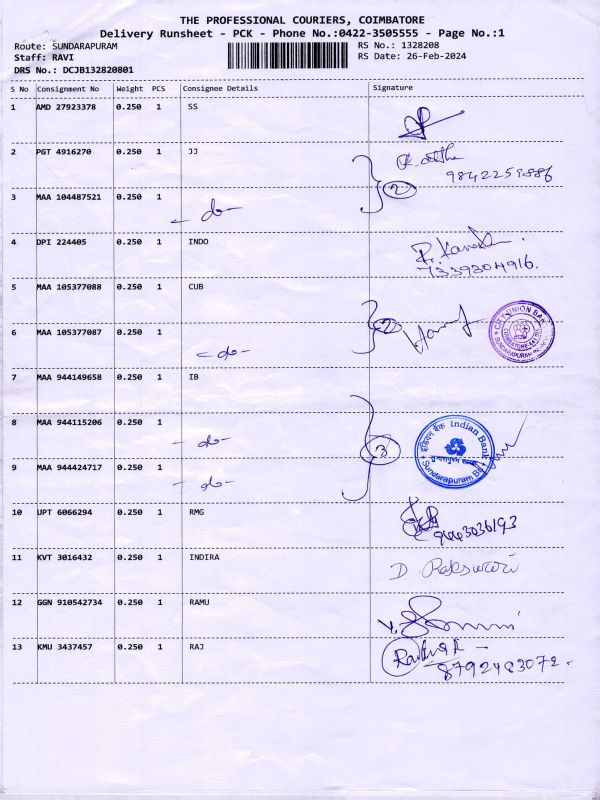 THE PROFESSIONAL COURIERS, COIMBATORE
Delivery Runsheet - PCK - Phone No.:0422-3505555 - Page No.:1
Route: SUNDARAPURAM
RS No.: 1328208
Staff: RAVI
RS Date: 26-Feb-2024
DRS No.: DCJB132820801
S No Consignment No Weight PCS Consignee Details Signature
1 AMD 27923378 0.250 1 SS
2 PGT 4916270 0.250 1 JJ
3 MAA 104487521 0.250 1
2
- do -
4 DPI 224405 0.250 1 INDO
7339204916.
5 MAA 105377088 0.250 1 CUB
2
CITY UNION BANK
6 MAA 105377087 0.250 1
- do -
7 MAA 944149658 0.250 1 IB
8 MAA 944115206 0.250 1
इंडियन बैंक Indian Bank
- do -
3
9 MAA 944424717 0.250 1
Sundarapuram
- do -
10 UPT 6066294 0.250 1 RMG
11 KVT 3016432 0.250 1 INDIRA
D. Rajeswari
12 GGN 910542734 0.250 1 RAMU
13 KMU 3437457 0.250 1 RAJ
8792483072.